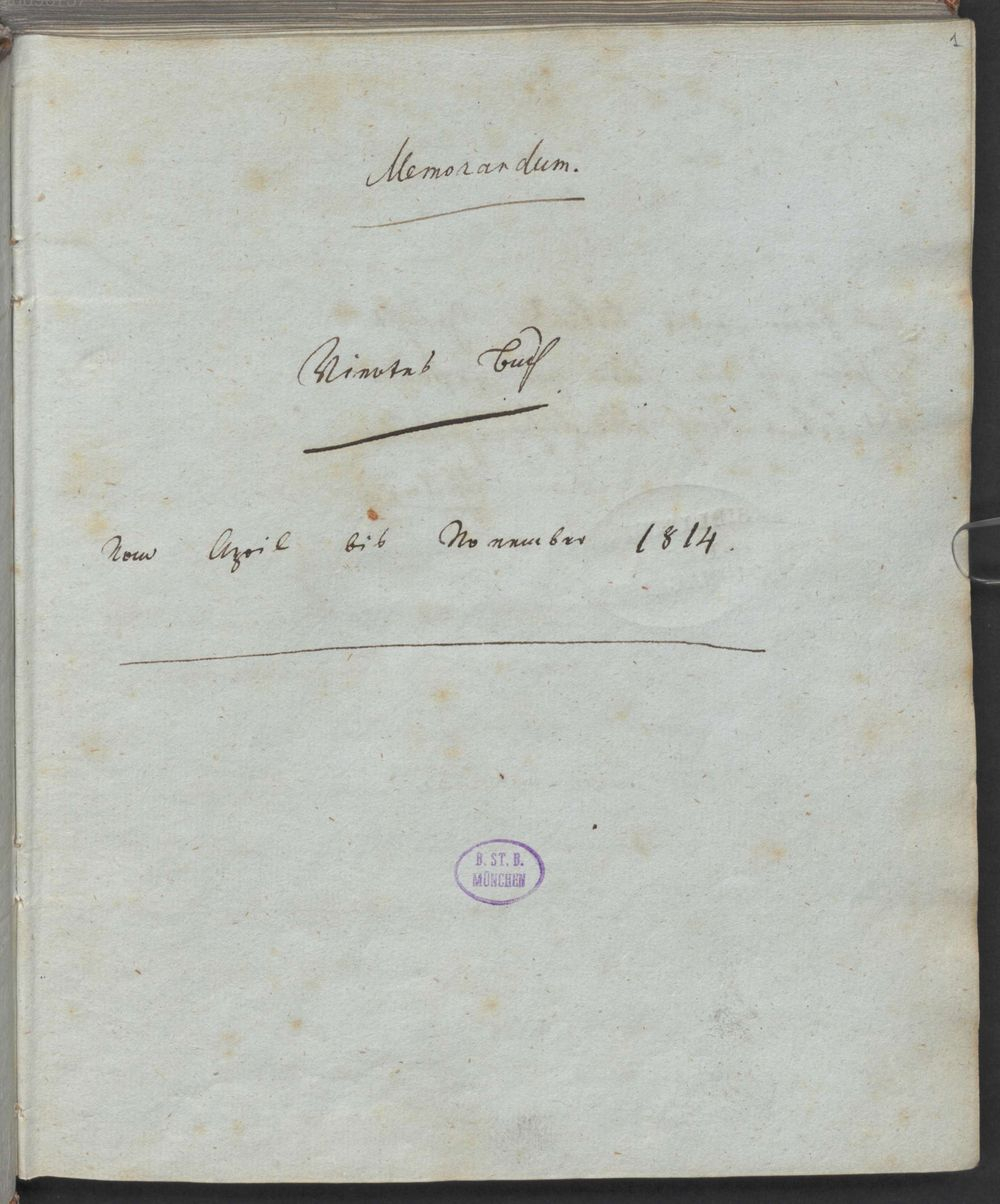 1
Memorandum.
Viertes Buch
Vom April bis November 1814.
B. ST. B.
MÜNCHEN